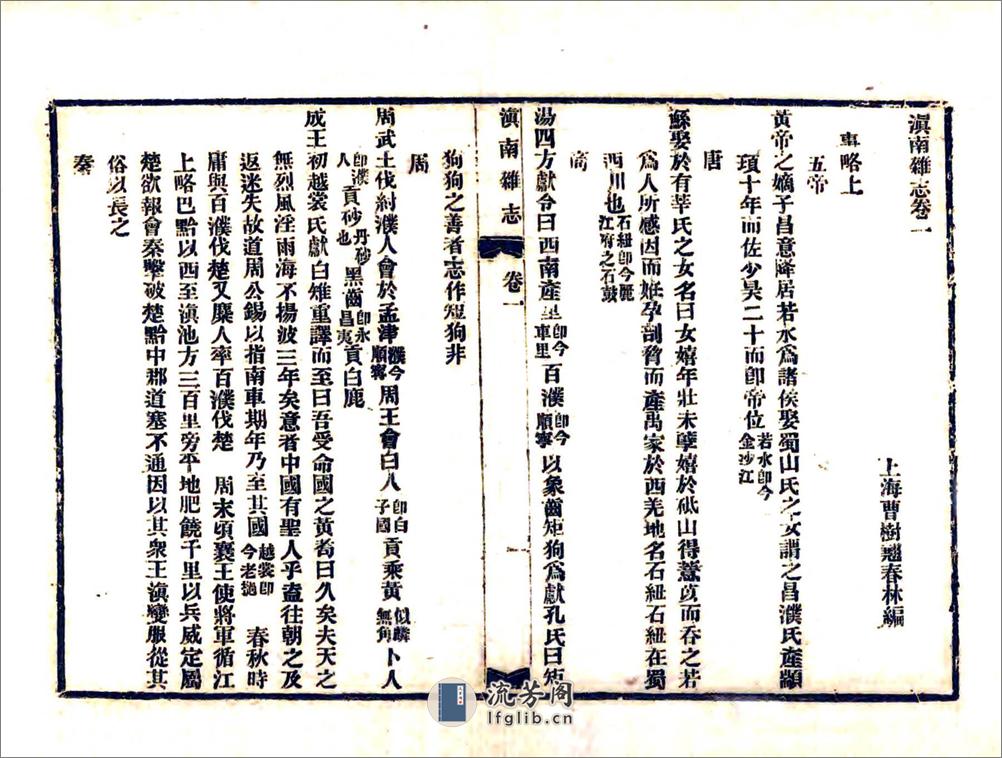 滇南雜志卷一
上海曹樹翹春林編
事略上
五帝
黃帝之嫡子昌意降居若水爲諸侯娶蜀山氏之女謂之昌濮氏產顓
頊十年而佐少昊二十而卽帝位若水卽今金沙江
唐
鯀娶於有莘氏之女名曰女嬉年壯未孳嬉於砥山得薏苡而吞之若
爲人所感因而妊孕剖脅而產禹家於西羌地名石紐石紐在蜀
西川也石紐卽今麗江府之石鼓
商
湯四方獻令曰西南產里卽今車里百濮卽今順寧以象齒矩狗爲獻孔氏曰短
滇南雜志 卷一
狗狗之善者志作短狗非
周
周武王伐紂濮人會於孟津濮今順寧周王會白人卽白子國貢乘黃似麟無角卜人
卽濮人貢砂丹砂也黑齒卽永昌夷貢白鹿
成王初越裳氏獻白雉重譯而至曰吾受命國之黃耉曰久矣夫天之
無烈風淫雨海不揚波三年矣意者中國有聖人乎盍往朝之及
返迷失故道周公錫以指南車期年乃至其國越裳卽今老撾 春秋時
庸與百濮伐楚又麋人率百濮伐楚 周末頃襄王使將軍循江
上略巴黔以西至滇池方三百里旁平地肥饒千里以兵威定屬
楚欲報會秦擊破楚黔中郡道塞不通因以其衆王滇變服從其
俗以長之
秦
流芳阁
lfglib.cn